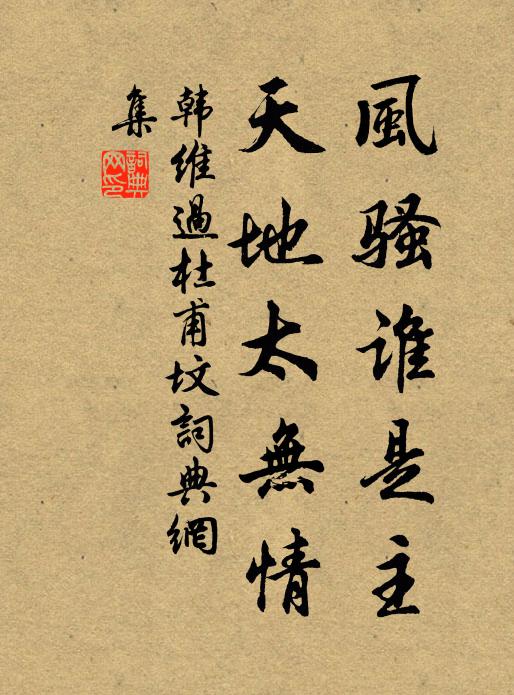 風騷誰是主
天地太無情
韩維過杜甫坟詞典網
集
詞典網印